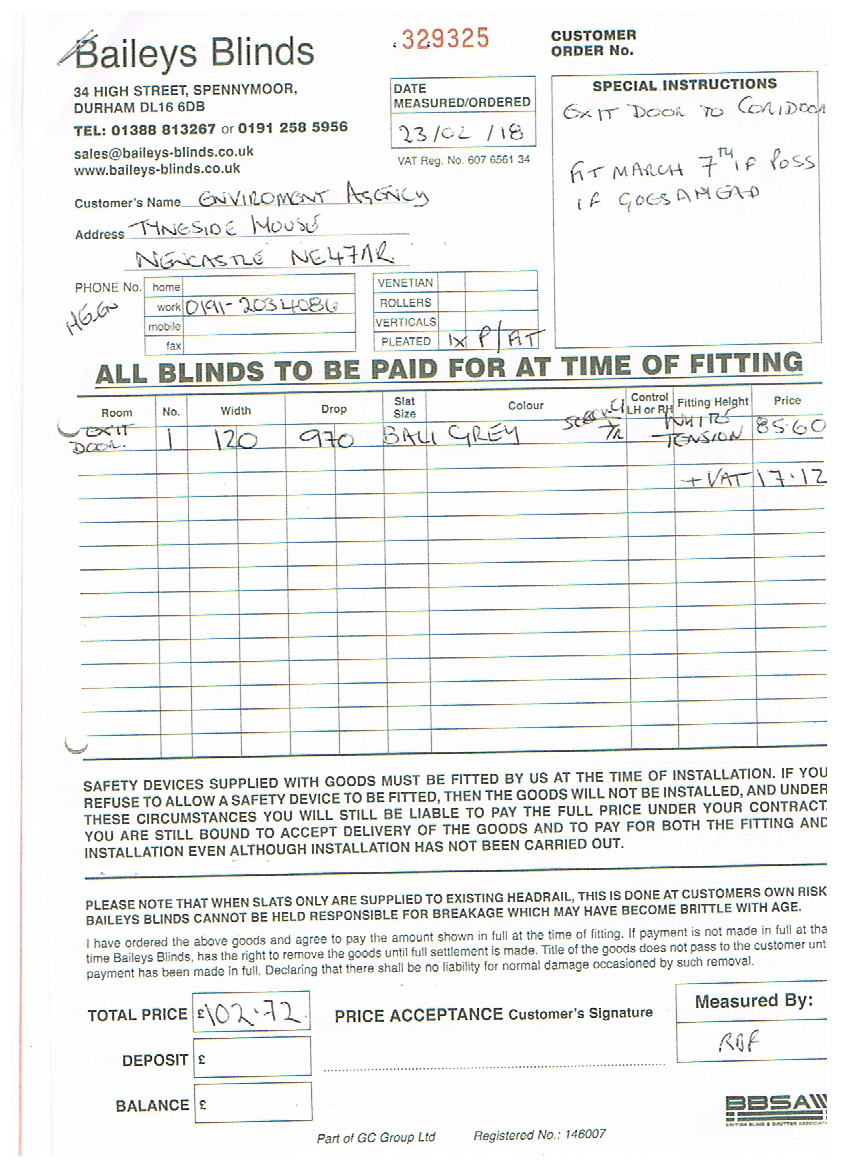 Baileys Blinds
329325
CUSTOMER
ORDER No.
34 HIGH STREET, SPENNYMOOR,
DURHAM DL16 6DB
TEL: 01388 813267 or 0191 258 5956
sales@baileys-blinds.co.uk
www.baileys-blinds.co.uk
DATE
MEASURED/ORDERED
23/02/18
VAT Reg. No. 607 6561 34
SPECIAL INSTRUCTIONS
EXIT DOOR TO CORIDOOR
FIT MARCH 7TH IF POSS
IF GOES AHEAD
Customer's Name ENVIROMENT AGENCY
Address TYNESIDE HOUSE
NEWCASTLE NE47AR
PHONE No. home
work 0191-2034086
mobile
fax
VENETIAN
ROLLERS
VERTICALS
PLEATED 1X P/FIT
ALL BLINDS TO BE PAID FOR AT TIME OF FITTING
Room No. Width Drop Slat Size Colour Control LH or RH Fitting Height Price
EXIT DOOR. 1 120 970 BALI GREY WHITE TENSION 85.60
+ VAT 17.12
SAFETY DEVICES SUPPLIED WITH GOODS MUST BE FITTED BY US AT THE TIME OF INSTALLATION. IF YOU
REFUSE TO ALLOW A SAFETY DEVICE TO BE FITTED, THEN THE GOODS WILL NOT BE INSTALLED, AND UNDER
THESE CIRCUMSTANCES YOU WILL STILL BE LIABLE TO PAY THE FULL PRICE UNDER YOUR CONTRACT.
YOU ARE STILL BOUND TO ACCEPT DELIVERY OF THE GOODS AND TO PAY FOR BOTH THE FITTING AND
INSTALLATION EVEN ALTHOUGH INSTALLATION HAS NOT BEEN CARRIED OUT.
PLEASE NOTE THAT WHEN SLATS ONLY ARE SUPPLIED TO EXISTING HEADRAIL, THIS IS DONE AT CUSTOMERS OWN RISK
BAILEYS BLINDS CANNOT BE HELD RESPONSIBLE FOR BREAKAGE WHICH MAY HAVE BECOME BRITTLE WITH AGE.
I have ordered the above goods and agree to pay the amount shown in full at the time of fitting. If payment is not made in full at tha
time Baileys Blinds, has the right to remove the goods until full settlement is made. Title of the goods does not pass to the customer unti
payment has been made in full. Declaring that there shall be no liability for normal damage occasioned by such removal.
TOTAL PRICE £102.72
PRICE ACCEPTANCE Customer's Signature
Measured By:
DEPOSIT £
BALANCE £
BBSA
BRITISH BLIND & SHUTTER ASSOCIATI
Part of GC Group Ltd Registered No.: 146007